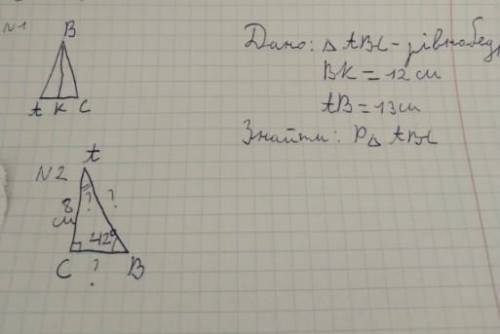 N1
B
A K C
Дано: △ ABC - рівнобед
BK = 12 см
AB = 13 см
Знайти: P△ ABC
N2
A
? ?
8 см
42°
C B
?